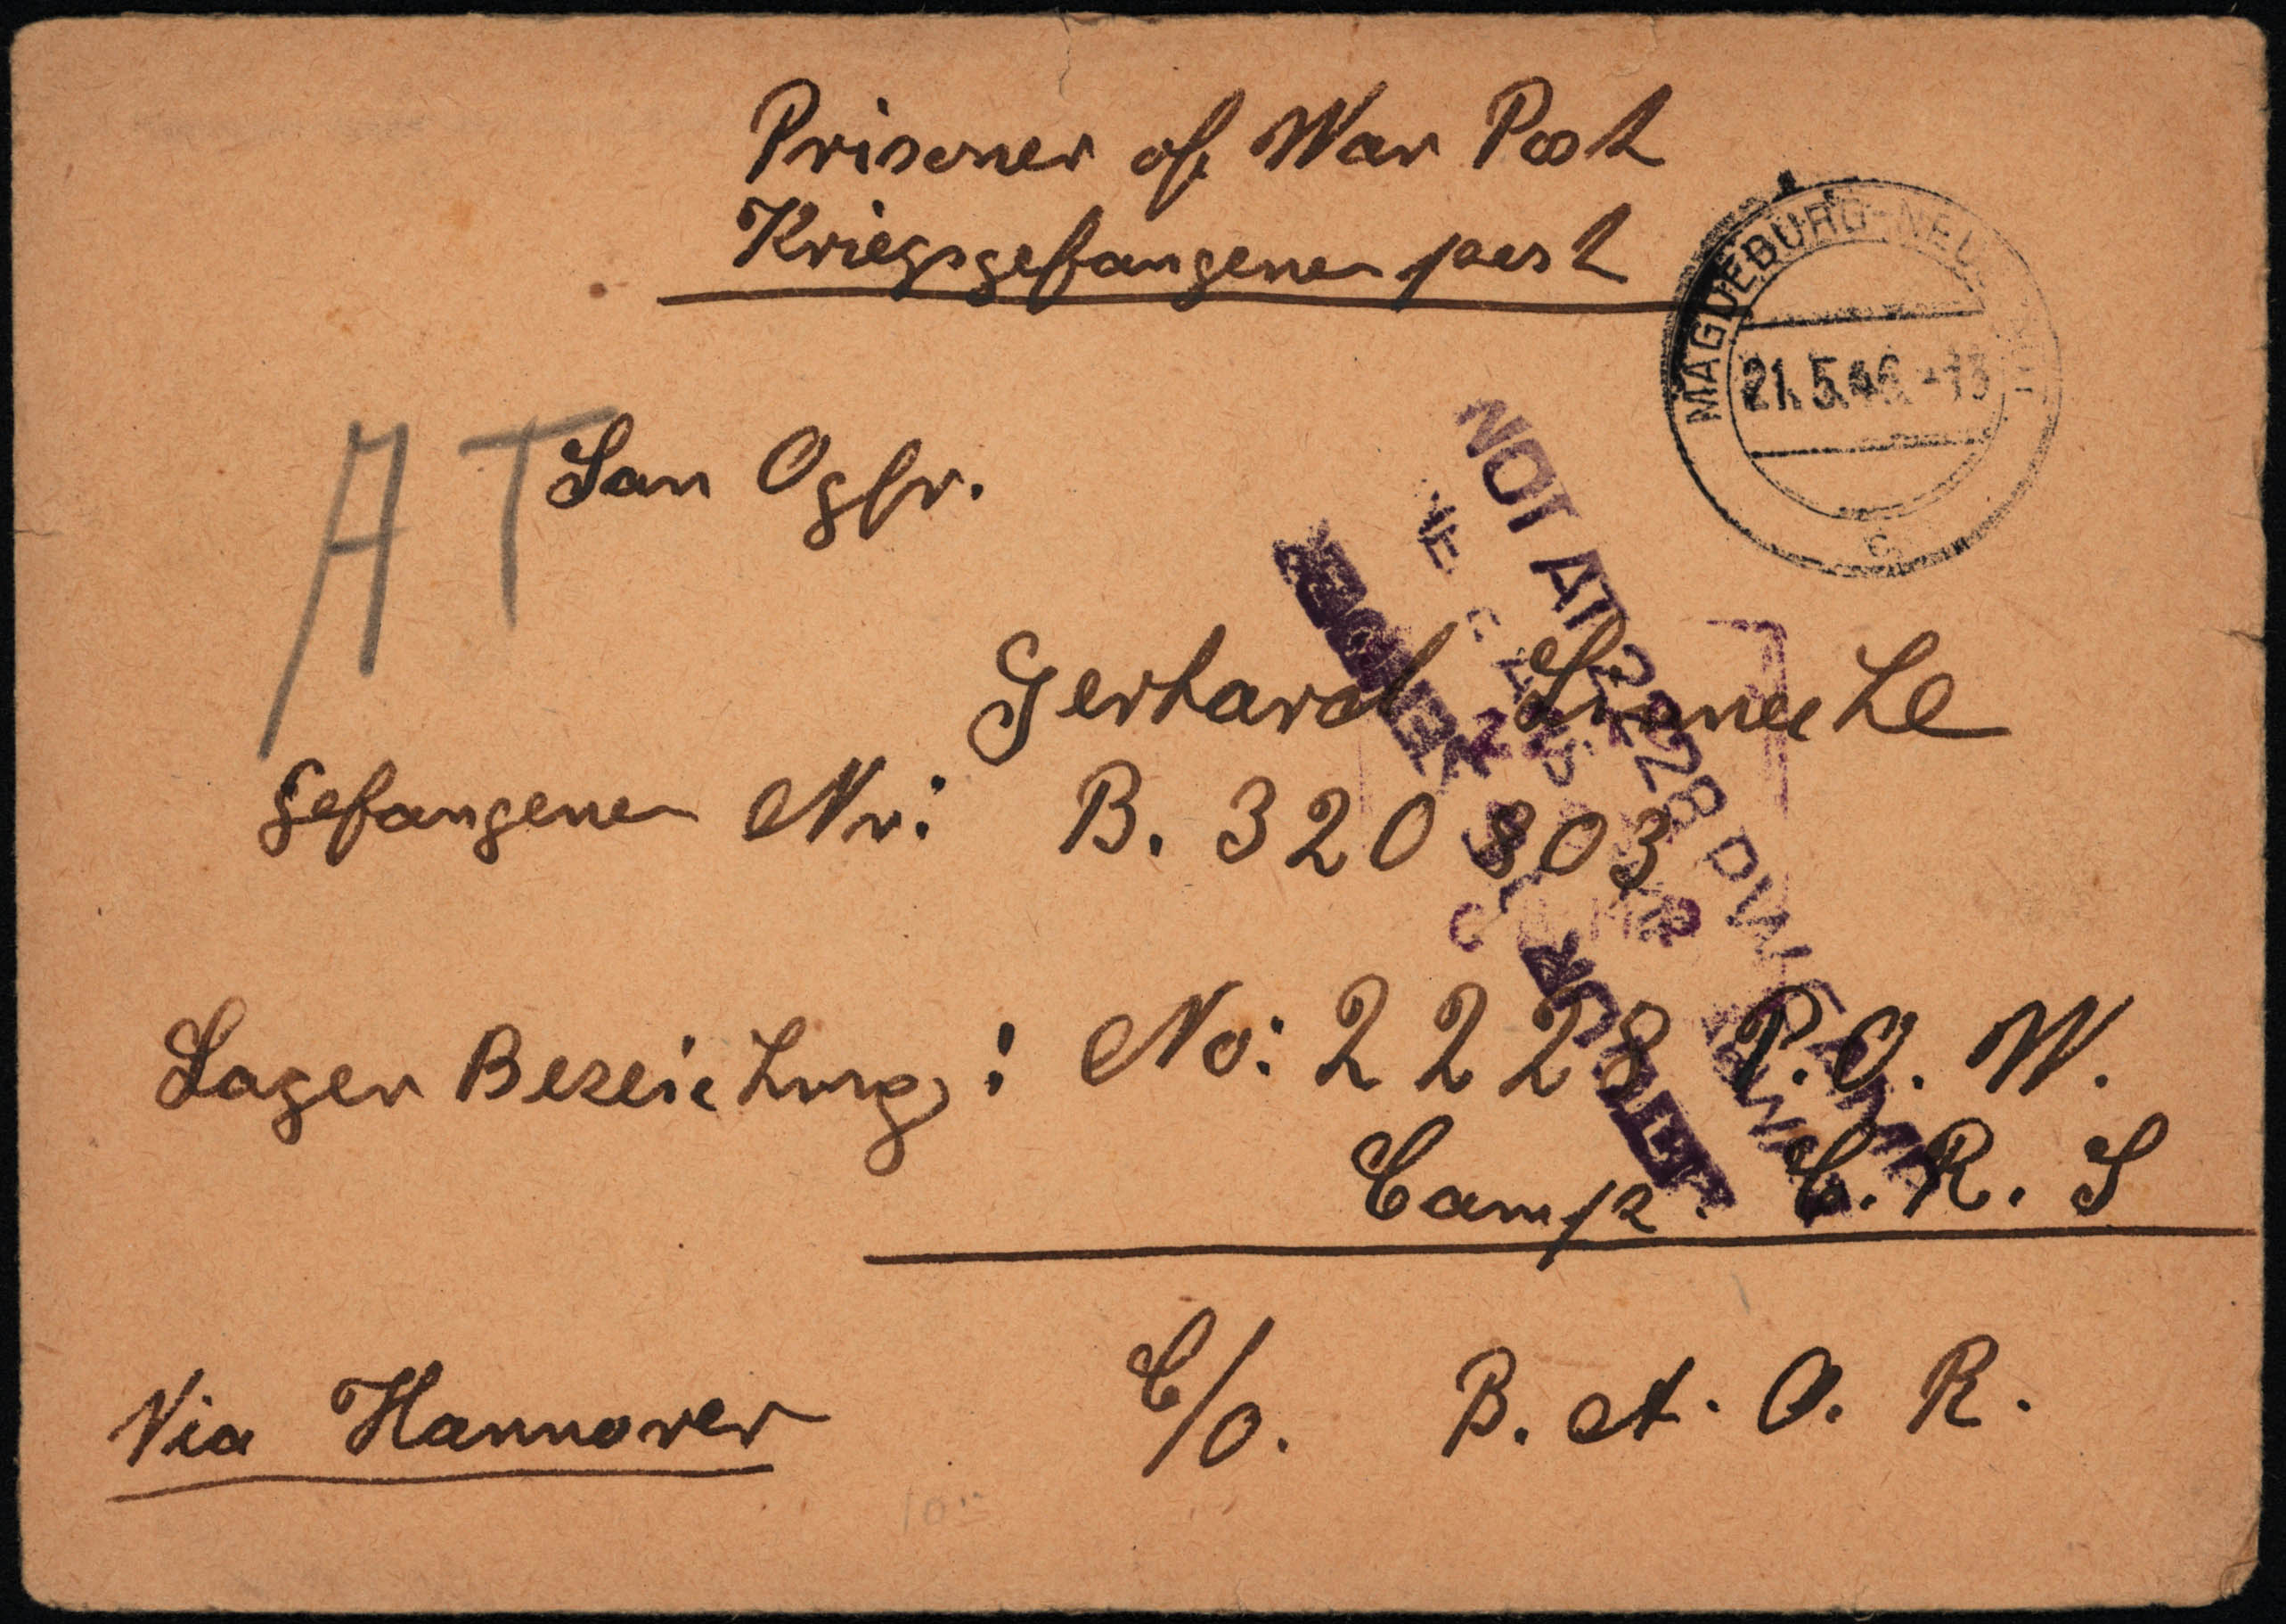 Prisoner of War Post
Kriegsgefangenenpost
MAGDEBURG-NEU
21.5.46.-13
c
AT
San Ogfr.
NOT AT 2228 PW CAMP
Gerhard
Gefangenen Nr: B. 320 803
CAMP
Lager Bezeichung: No: 2228 P.O.W.
Camp. C.R.S
Via Hannover C/o. B.A.O.R.